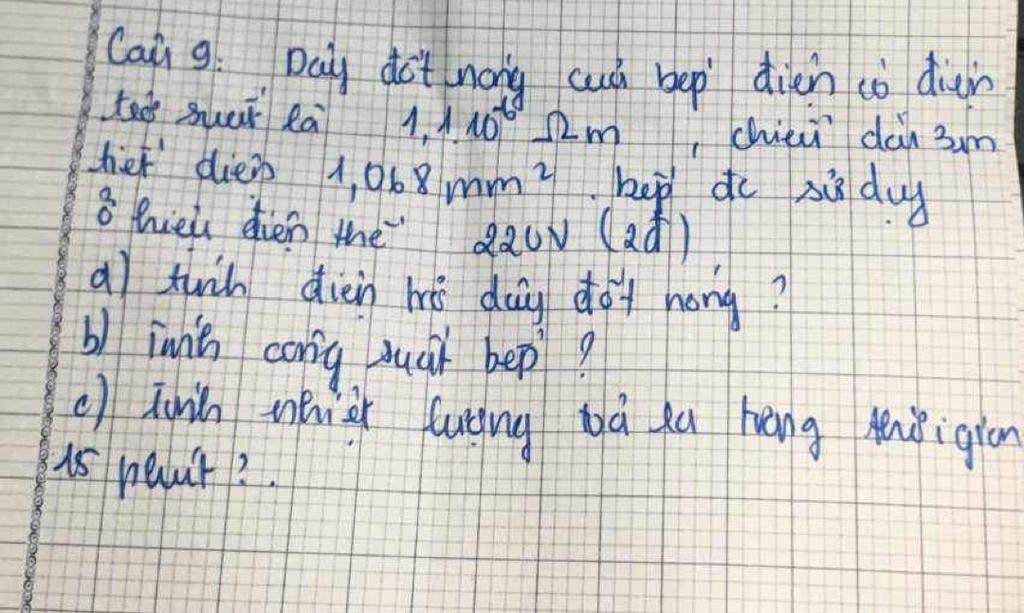 Câu 9: Dây đốt nóng của bếp điện có điện
trở suất là 1,1.10⁻⁶ Ωm, chiều dài 3m
tiết diện 1,068mm². bếp đc sử dụg
ở hiệu điện thế 220V (2đ)
a) tính điện trở dây đốt nóng?
b) Tính công suất bếp?
c) Tính nhiệt lượng toả ra trong thời gian
15 phút?.